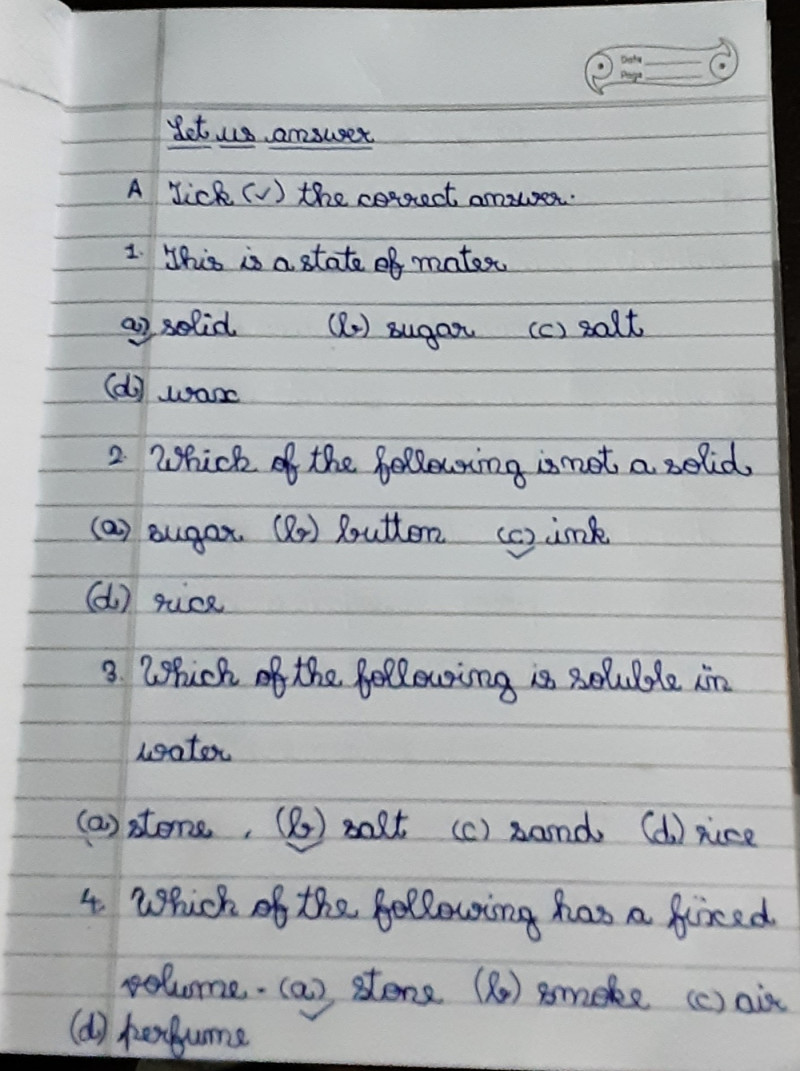 Date
Page
Let us answer
A Tick (✓) the correct answer.
1. This is a state of mater
a) solid (b) sugar (c) salt
(d) wax
2. Which of the following is not a solid
(a) sugar (b) button (c) ink
(d) rice
3. Which of the following is soluble in
water
(a) stone, (b) salt (c) sand (d) rice
4. Which of the following has a fixed
volume. (a) stone (b) smoke (c) air
(d) perfume